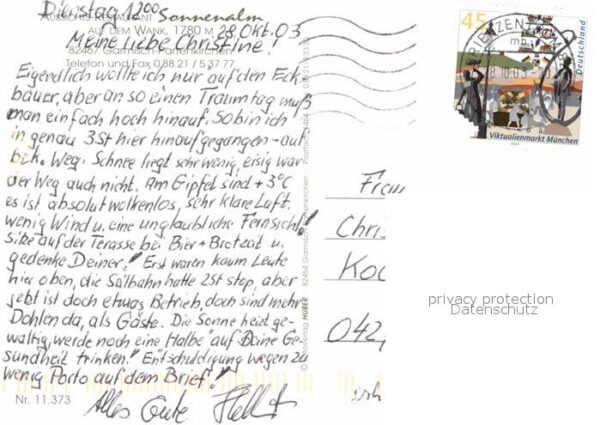 Dienstag 12⁰⁰
Aussichts-Restaurant Sonnenalm
AUF DEM WANK, 1780 M 28. Okt. 03
Meine liebe Christine!
82467 Garmisch-Partenkirchen
Telefon und Fax 0 88 21 / 5 37 77
Eigendlich wollte ich nur auf den Eck-
bauer, aber an so einen Traumtag muß
man einfach hoch hinauf. So bin ich
in genau 3 St hier hinaufgegangen - auf
bek. Weg. Schnee liegt sehr wenig, eisig war
der Weg auch nicht. Am Gipfel sind +3°C
es ist absolut wolkenlos, sehr klare Luft,
wenig Wind u. eine unglaubliche Fernsicht!
Sitze auf der Terasse bei Bier + Brotzeit u.
gedenke Deiner! Erst waren kaum Leute
hier oben, die Sailbahn hatte 2 St stop, aber
jetzt ist doch etwas Betrieb, doch sind mehr
Dohlen da, als Gäste. Die Sonne heizt ge-
waltig, werde noch eine Halbe "auf Deine Ge-
sundheit trinken!" Entschuldigung wegen zu
wenig Porto auf dem Brief!
Alles Gute
Nr. 11.373
HUBER
82454 Garmisch-Partenkirchen
Frau
Chris
Koc
042
45
Deutschland
BRIEFZENTRUM
Viktualienmarkt München
privacy protection
Datenschutz